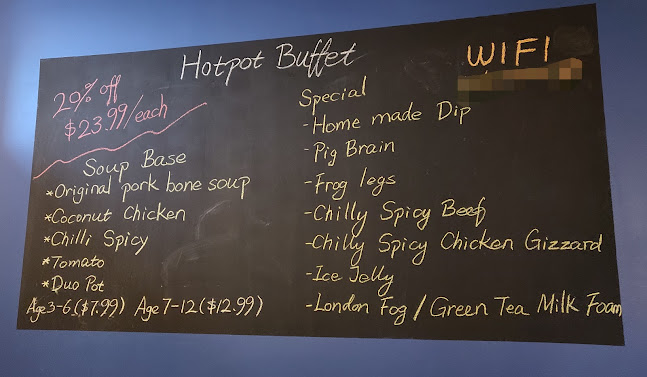 Hotpot Buffet
20% off
$23.99/each
Soup Base
*Original pork bone soup
*Coconut Chicken
*Chilli Spicy
*Tomato
*Duo Pot
Age 3-6 ($7.99) Age 7-12 ($12.99)
WIFI
Special
-Home made Dip
-Pig Brain
-Frog legs
-Chilly Spicy Beef
-Chilly Spicy Chicken Gizzard
-Ice Jelly
-London Fog / Green Tea Milk Foam